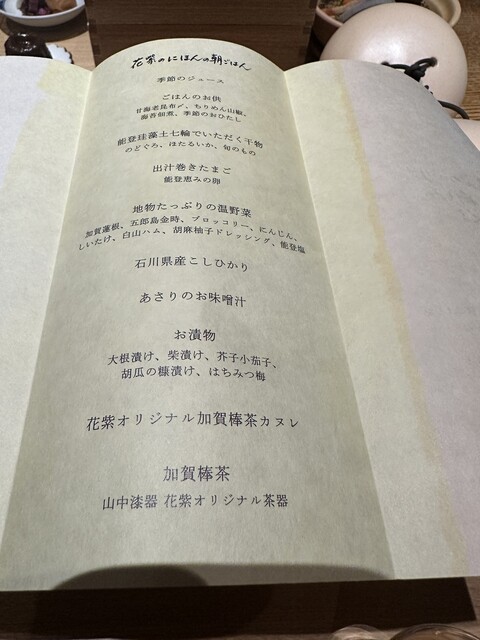 花紫のにほんの朝ごはん
季節のジュース
ごはんのお供
甘海老昆布〆、ちりめん山椒、
海苔佃煮、季節のおひたし
能登珪藻土七輪でいただく干物
のどぐろ、ほたるいか、旬のもの
出汁巻きたまご
能登恵みの卵
地物たっぷりの温野菜
加賀蓮根、五郎島金時、ブロッコリー、にんじん、
しいたけ、白山ハム、胡麻柚子ドレッシング、能登塩
石川県産こしひかり
あさりのお味噌汁
お漬物
大根漬け、柴漬け、芥子小茄子、
胡瓜の糠漬け、はちみつ梅
花紫オリジナル加賀棒茶カヌレ
加賀棒茶
山中漆器 花紫オリジナル茶器